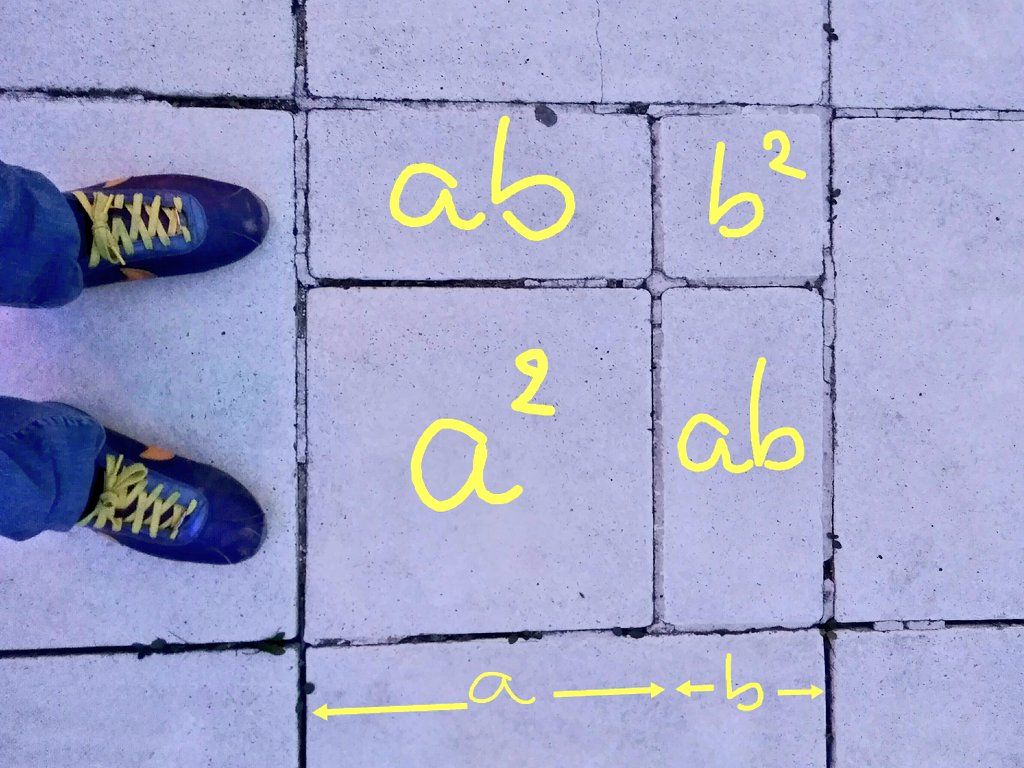 ab b²
a² ab
a b